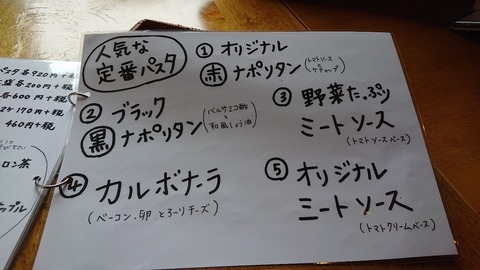 人気な
定番パスタ
① オリジナル
赤 ナポリタン
(トマトソース
と
ケチャップ)
② ブラック
黒 ナポリタン
(バルサミコ酢
と
和風しょう油)
③ 野菜たっぷり
ミートソース
(トマトソースベース)
④ カルボナーラ
(ベーコン、卵 とろ〜りチーズ)
⑤ オリジナル
ミートソース
(トマトクリームベース)
パスタ各920円+税
各200円+税
各600円+税
170円+税
460円+税
ロン茶
ップル